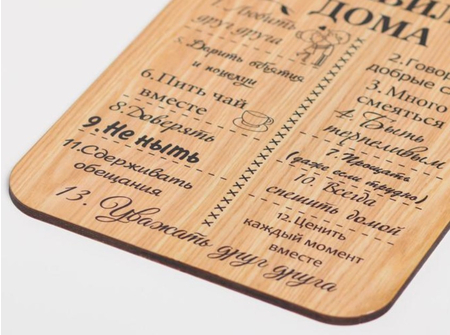 ДОМА
1. Любить
друг друга
2. Говор
добрые с
3. Много
смеяться
4. Быть
терпеливым
5. Дарить объятия
и
6. Пить чай
вместе
7. Прощать
(даже если трудно)
8. Доверять
9. Не ныть
10. Всегда
спешить домой
11. Сдерживать
обещания
12. Ценить
каждый момент
вместе
13. Уважать друг друга